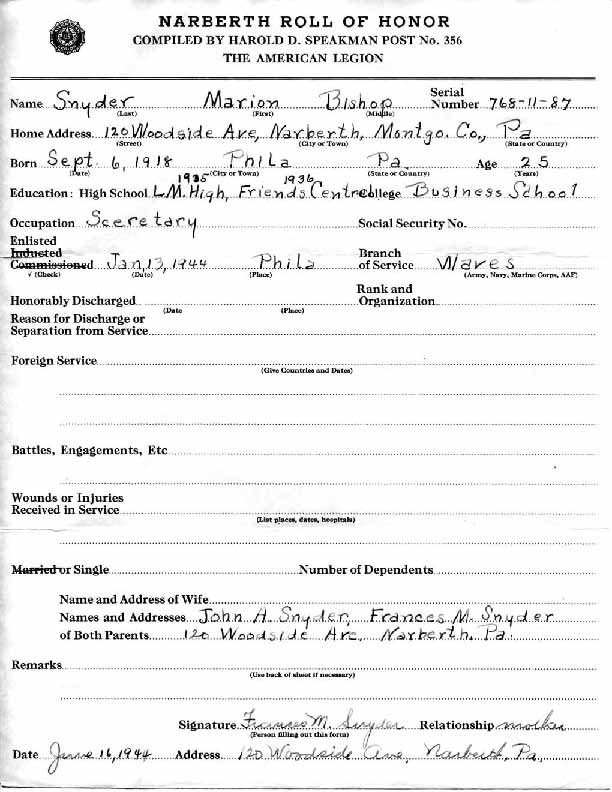 NARBERTH ROLL OF HONOR
COMPILED BY HAROLD D. SPEAKMAN POST No. 356
THE AMERICAN LEGION
Name Snyder Marion Bishop Serial Number 768-11-87
(Last) (First) (Middle)
Home Address 120 Woodside Ave, Narberth, Montgo. Co., Pa
(Street) (City or Town) (State or Country)
Born Sept. 6, 1918 Phila Pa. Age 25
(Date) (City or Town) (State or Country) (Years)
1935 1936
Education: High School L.M. High, Friends Centre College Business School
Occupation Secretary Social Security No.
Enlisted
Inducted
Commissioned Jan, 13, 1944 Phila Branch of Service Waves
√ (Check) (Date) (Place) (Army, Navy, Marine Corps, AAF)
Honorably Discharged Rank and Organization
(Date (Place)
Reason for Discharge or
Separation from Service
Foreign Service
(Give Countries and Dates)
Battles, Engagements, Etc
Wounds or Injuries
Received in Service
(List places, dates, hospitals)
Married or Single Number of Dependents
Name and Address of Wife
Names and Addresses John A. Snyder, Frances M. Snyder
of Both Parents 120 Woodside Ave, Narberth. Pa.
Remarks
(Use back of sheet if necessary)
Signature Frances M. Snyder Relationship mother
(Person filling out this form)
Date June 16, 1944 Address 120 Woodside Ave, Narberth, Pa.